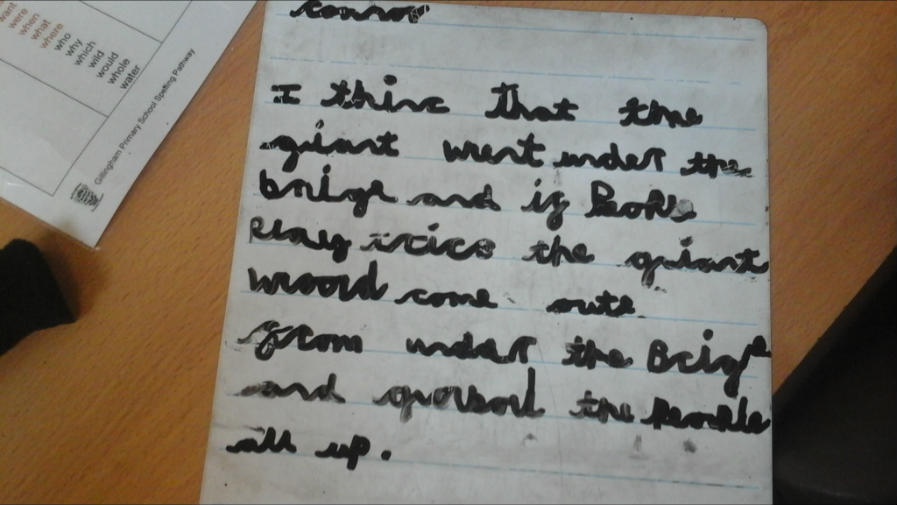 want
were
when
what
where
who
why
which
wild
would
whole
water
Gillingham Primary School Spelling Pathway
connor
I thinc that the
giant went under the
brige and if
Play the giant
woold come oute
from under the Brige
and the
all up.